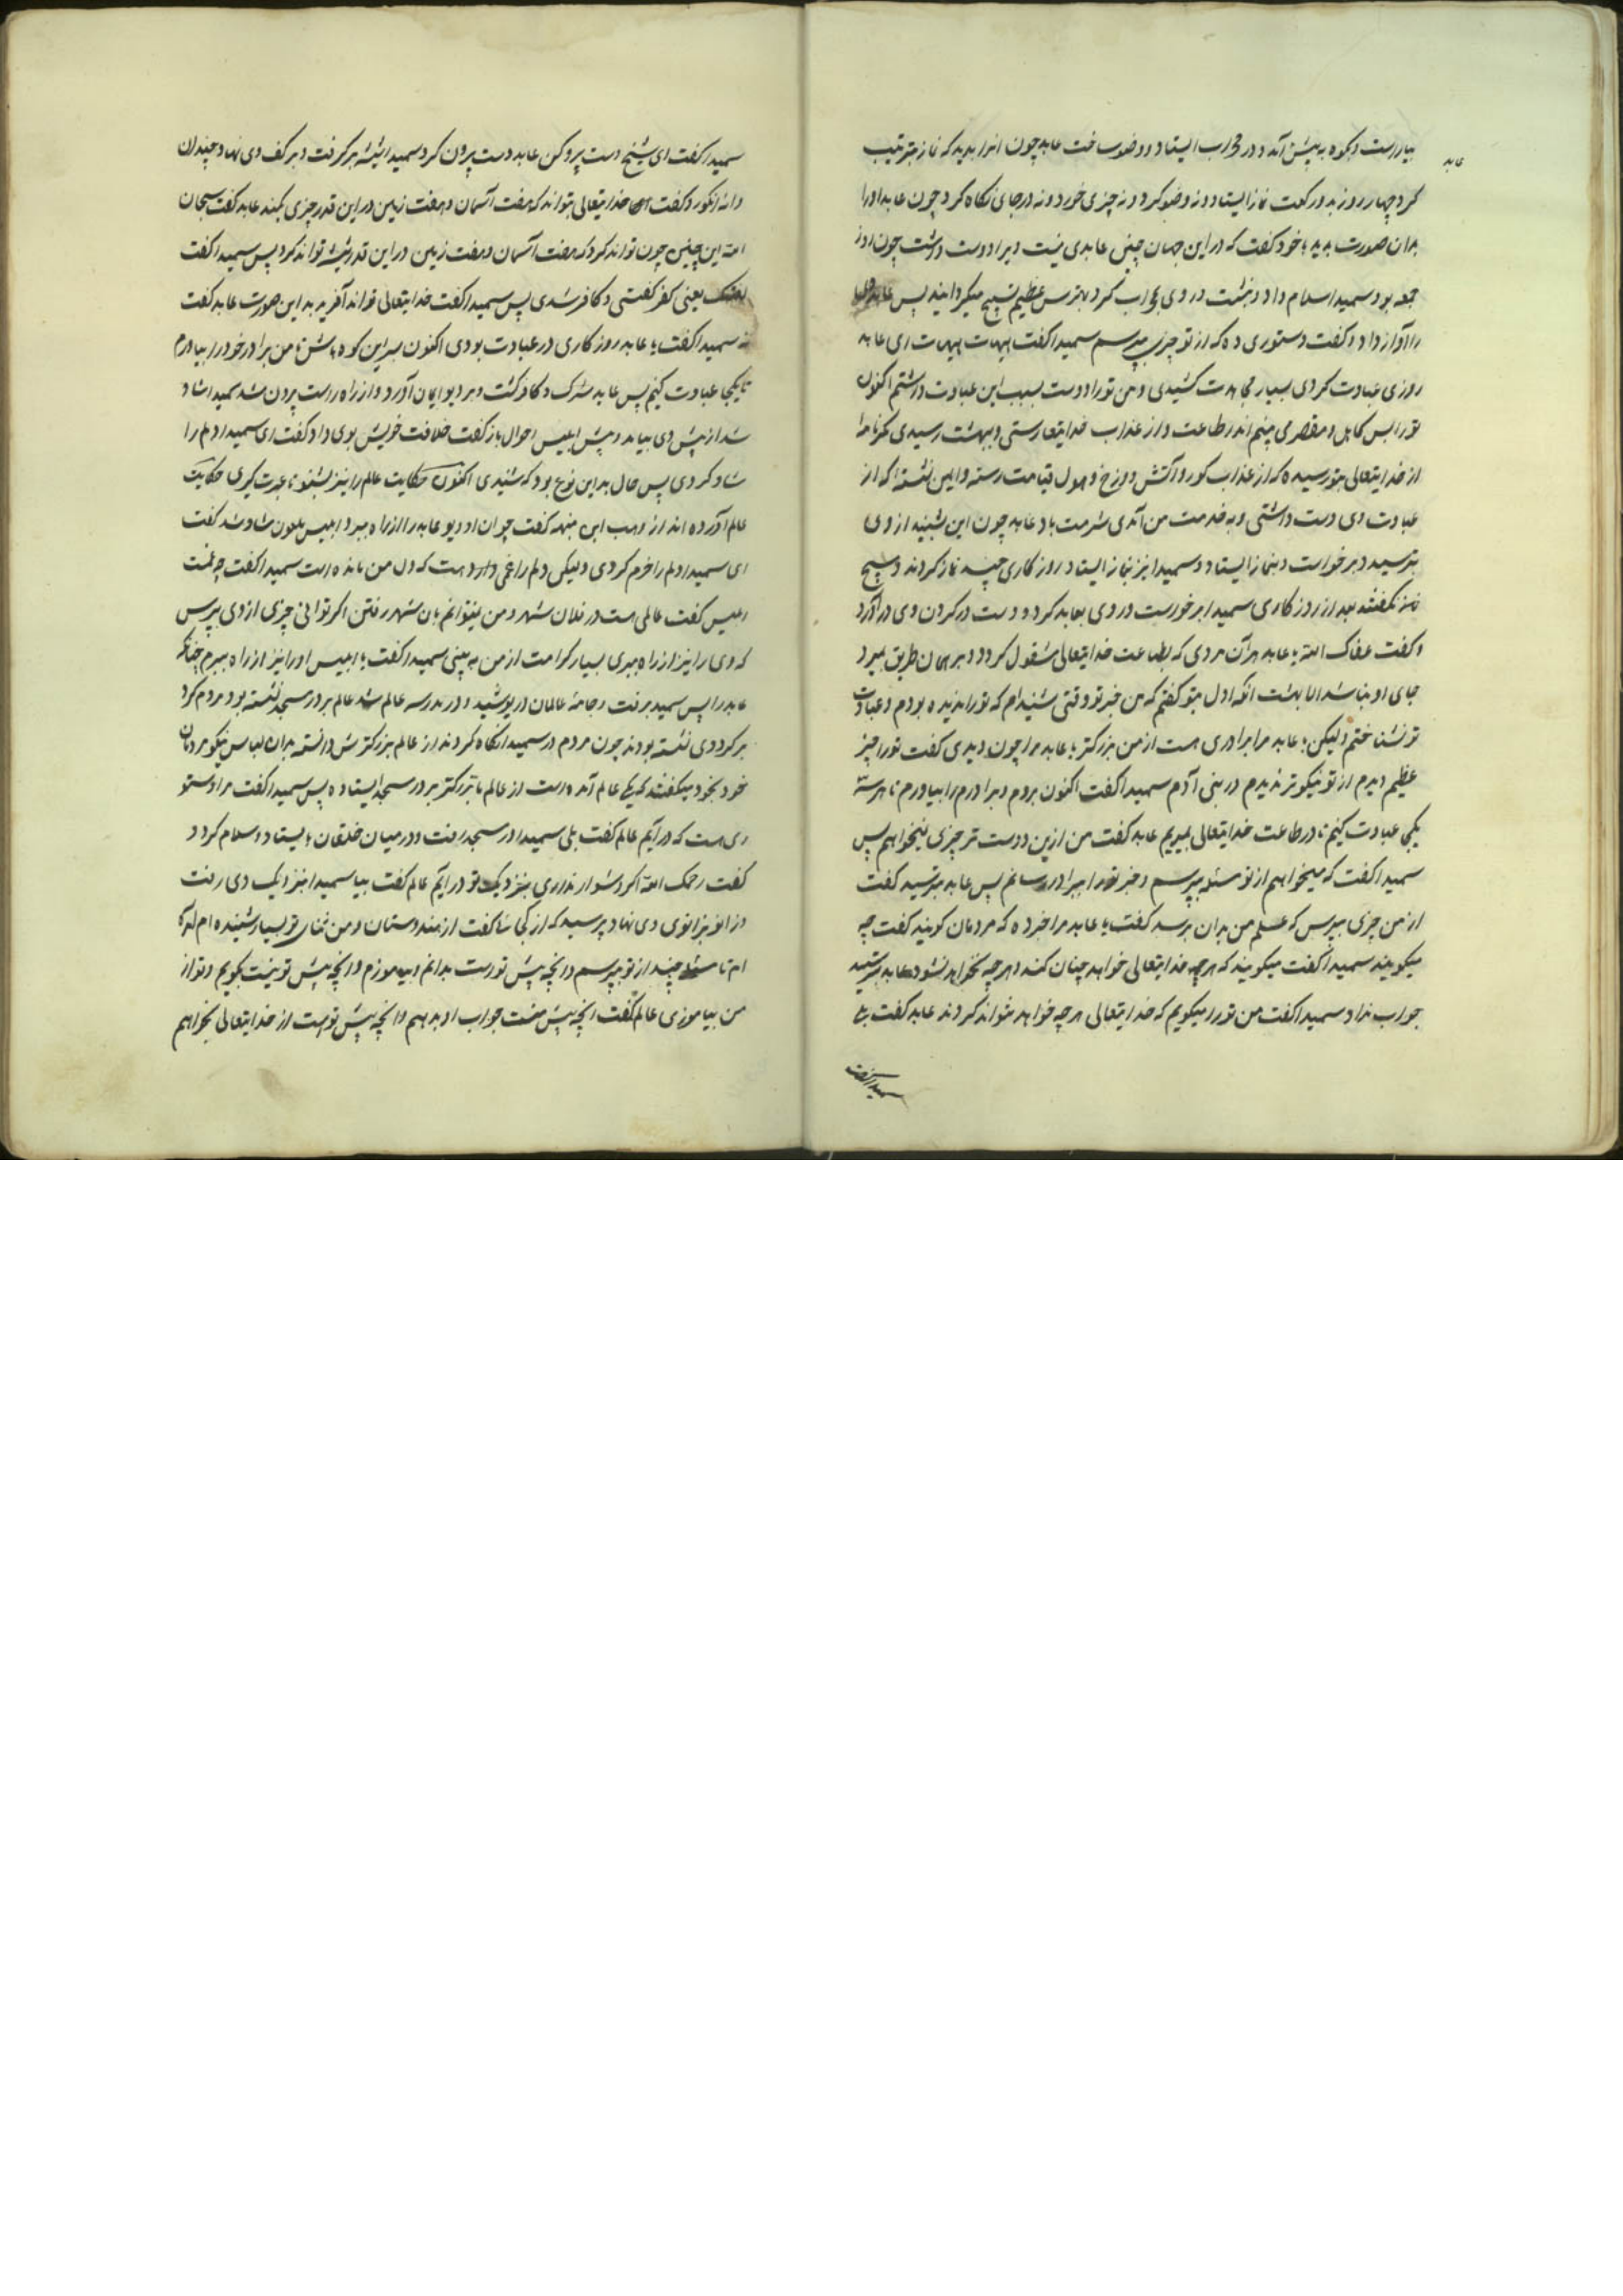 بیاراست و بکوه به پیش آمد و در محراب ایستاد و وضو ساخت عابد چون انرا بدید که نماز بترتیب
عابد
کرد چهار روز بدو رکعت نماز ایستاد و نه وضو کرد و نه چیزی خورد و نه در جای نکاه کرد چون عابد او را
بدان صورت بدید با خود کفت که در این جهان چنین عابدی نیست ویرا دوست داشت چون روز
جمعه بود سمیدا سلام داد و بنشست و روی بمحراب کرد و بترس عظیم تسبیح میکردانید پس عابد
را آواز داد و کفت دستوری ده که از تو چیزی بپرسم سمیدا کفت هیهات هیهات ای عابد
روزی عبادت کردی بسیار مجاهدت کشیدی و من تو را دوست بسبب این عبادت داشتم اکنون
تو را بس کاهل و مقصر می بینم اندر طاعت و از عذاب خدایتعا رستی و ببهشت رسیدی مکر نامهٔ
از خدایتعالی بتو رسیده که از عذاب کور و آتش دوزخ و هول قیامت رسته و ایمن نشسته که از
عبادت وی دست داشتی و به خدمت من آمدی شرمت باد عابد چون این بشنید از وی
بترسید و برخواست و بنماز ایستاد و سمیدا نیز بنماز ایستاد روزکاری چند نماز کردند و هیچ
نکفتند بعد از روزکاری سمیدا برخواست و روی بعابد کرد و دست در کردن وی در آورد
و کفت عفاک الله یا عابد هر آن مردی که بطاعت خدایتعالی مشغول کردد و بر همان طریق بمیرد
جای او نباشد الا بهشت آنکه اول بتو کفتم که من خبر تو وقتی شنیدم که تو را ندیده بودم و عبادت
تو نشناختم ولیکن یا عابد مرا برادری هست از من بزرکتر یا عابد مرا چون دیدی کفت تو را چیز
عظیم دیدم از تو نیکوتر ندیدم در بنی آدم سمیدا کفت اکنون بروم و برادرم را بیاورم تا هر سه
یکجا عبادت کنیم تا در طاعت خدایتعالی بمیریم عابد کفت من از این دوست تر چیزی نمیخواهم پس
سمیدا کفت که میخواهم از تو مسئله بپرسم و خبر تو را ببرادر رسانم پس عابد بترسید کفت
از من چیزی بپرس که علم من بدان برسد کفت یا عابد مرا خبر ده که مردمان کویند کفت چه
میکویند سمیدا کفت میکویند که هر چه خدایتعالی خواهد چنان کند و هر چه نخواهد نشود عابد بترسید
جواب نداد سمیدا کفت من تو را میکویم که خدایتعالی هر چه خواهد بتواند کردند عابد کفت بلی
سمیدا کفت
سمیدا کفت ای شیخ دست بیرون کن عابد دست بیرون کرد سمیدا شیشه برکرفت و بر کف وی نهاد چندان
دانه انکور و کفت خدایتعالی بتواند که هفت آسمان و هفت زمین در این قدر چیزی کند عابد کفت سبحان
الله این چنین چون تواند کرد که هفت آسمان و هفت زمین در این قدر شیشه تواند کرد پس سمیدا کفت
یعنی کفر کفتی و کافر شدی پس سمیدا کفت خدایتعالی تواند آفرید به این صورت عابد کفت
نه سمیدا کفت یا عابد روزکاری در عبادت بودی اکنون بسر این کوه باش تا من برادر خود را بیاورم
تا یکجا عبادت کنیم پس عابد مشرک و کافر کشت و بر دیو ایمان آورد و از راه راست بیرون شد سمیدا شاد
شد از پیش وی بیامد و پیش ابلیس احوال باز کفت خلافت خویش بوی داد و کفت ای سمیدا دلم را
شاد کردی پس حال بدین نوع بود که شنیدی اکنون حکایت عالم را نیز بشنو تا عبرت کیری حکایت
عالم آورده اند از وهب ابن منبه کفت چون او دیو عابد را از راه ببرد ابلیس ملعون شاد شد کفت
ای سمیدا دلم را خرم کردی ولیکن دلم را غمی هست که دل من مانده است سمیدا کفت چه غمت
ابلیس کفت عالمی هست در فلان شهر و من نمیتوانم بان شهر رفتن اکر توانی چیزی از وی بپرس
که وی را نیز از راه ببری بسیار کرامت از من به بینی سمیدا کفت یا ابلیس او را نیز از راه ببرم چنانکه
عابد را پس سمیدا برفت و جامهٔ عالمان در پوشید و در مدرسه عالم شد عالم بر در مسجد نشسته بود و مردم کرد
بر کرد وی نشسته بودند چون مردم در سمیدا نکاه کردند از عالم بزرکترش دانسته بدان لباس نیکو مردمان
خود بخود میکفتند که یکی عالم آمده است از عالم ما بزرکتر بر در مسجد ایستاده پس سمیدا کفت مرا دستو
ری هست که در آیم عالم کفت بلی سمیدا در مسجد رفت و در میان خلقان بایستاد و سلام کرد و
کفت رحمک الله اکر دشوار نداری بنزدیک تو در آیم عالم کفت بیا سمیدا بنزدیک وی رفت
و زانو بزانوی وی نهاد و پرسید که از کجائی کفت از هندوستان و من ثنای تو بسیار شنیده ام آمده
ام تا مسئله چند از تو بپرسم و آنچه پیش تو است بدانم و بیاموزم و آنچه پیش تو نیست بکویم و تو از
من بیاموزی عالم کفت آنچه پیش منست جواب او بدهم و آنچه پیش تو است از خدایتعالی بخواهم